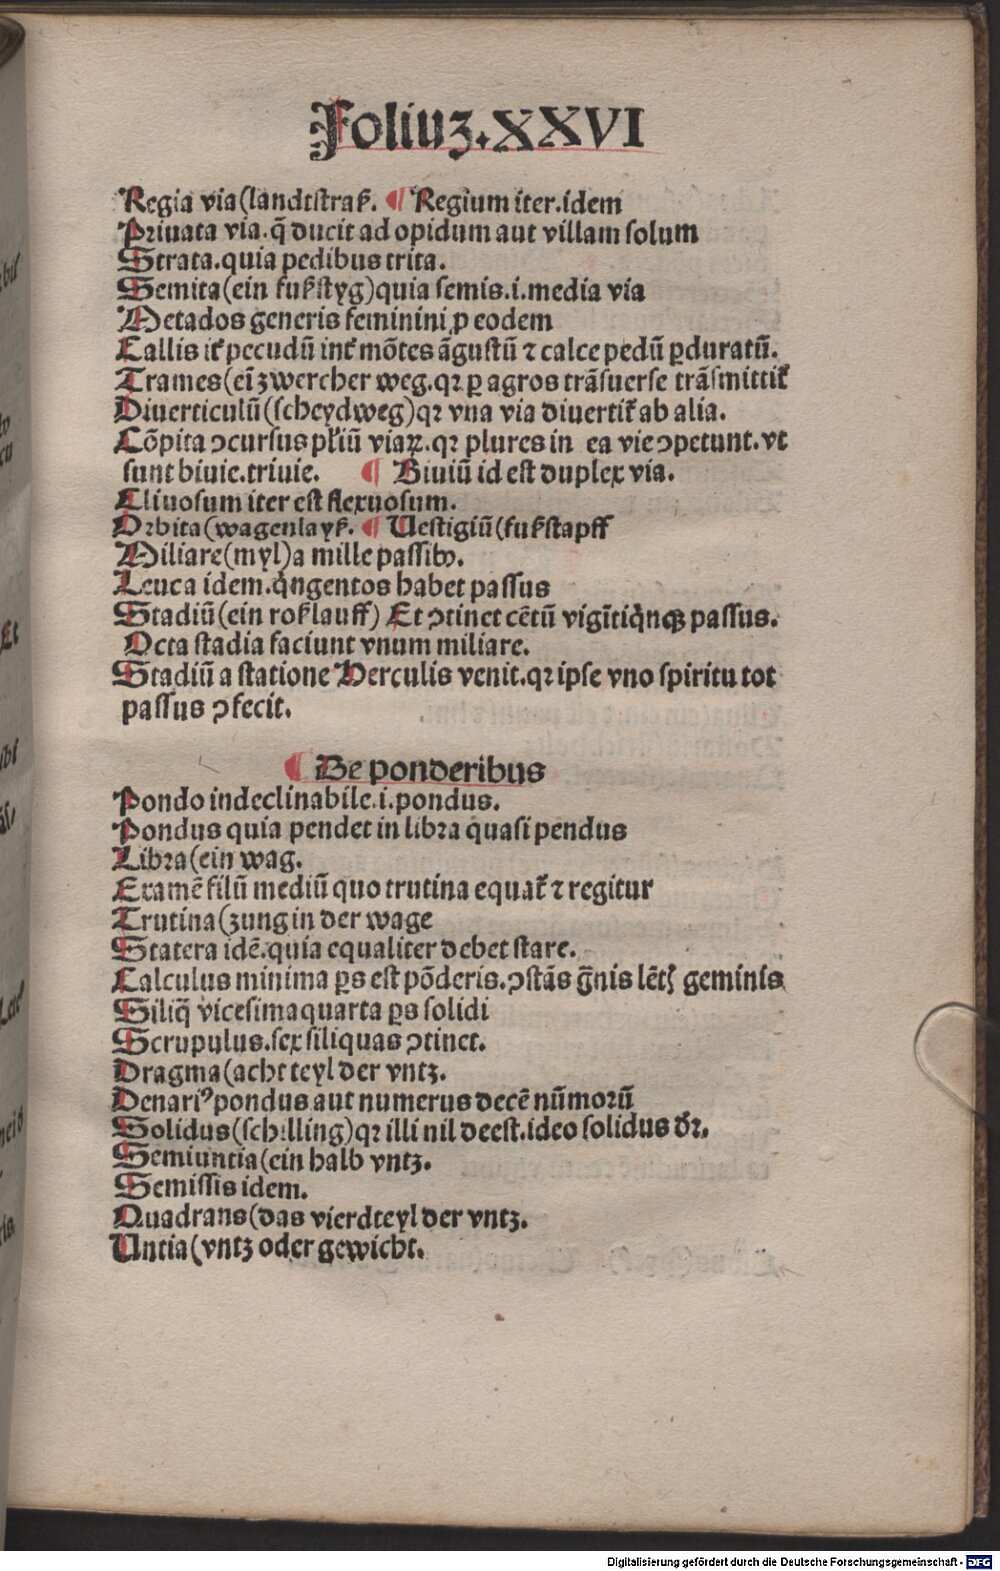 Foliuꝫ.XXVI
Regia via(landtstraß. ¶ Regium iter.idem
Priuata via.q̃ ducit ad opidum aut villam solum
Strata.quia pedibus trita.
Semita(ein fußstyg)quia semis.i.media via
Metados generis feminini ꝓ eodem
Callis iť pecudū inť mõtes ãgustũ ⁊ calce pedũ ꝑduratũ.
Trames(eĩ zwercher weg.qꝛ ꝑ agros trãsuerse trãsmittiť
Diuerticulũ(scheydweg)qꝛ vna via diuertiť ab alia.
Cõpita ↄcursus pľiũ viaꝝ.qꝛ plures in ea vie ↄpetunt.vt
sunt biuie.triuie. ¶ Biuiũ id est duplex via.
Cliuosum iter est flexuosum.
Orbita(wagenlayß. ¶ Uestigiũ(fußstapff
Miliare(myl)a mille passibꝰ.
Leuca idem.qͥngentos habet passus
Stadiũ(ein roßlauff) Et ↄtinet cẽtũ vigĩtiqͥnqꝫ passus.
Octa stadia faciunt vnum miliare.
Stadiũ a statione Herculis venit.qꝛ ipse vno spiritu tot
passus ↄfecit.
¶ De ponderibus
Pondo indeclinabile.i.pondus.
Pondus quia pendet in libra quasi pendus
Libra(ein wag.
Examẽ filũ mediũ quo trutina equať ⁊ regitur
Trutina(zung in der wage
Statera idẽ.quia equaliter debet stare.
Calculus minima ꝑs est põderis.ↄstãs g̃nis lẽtꝭ geminis
Siliq̃ vicesimaquarta ꝑs solidi
Scrupulus.sex siliquas ↄtinet.
Dragma(acht teyl der vntz.
Denariꝰ pondus aut numerus decẽ nũmorũ
Solidus(schilling)qꝛ illi nil deest.ideo solidus dr̃.
Semiuntia(ein halb vntz.
Semissis idem.
Quadrans(das vierdteyl der vntz.
Untia(vntz oder gewicht.
Digitalisierung gefördert durch die Deutsche Forschungsgemeinschaft - DFG